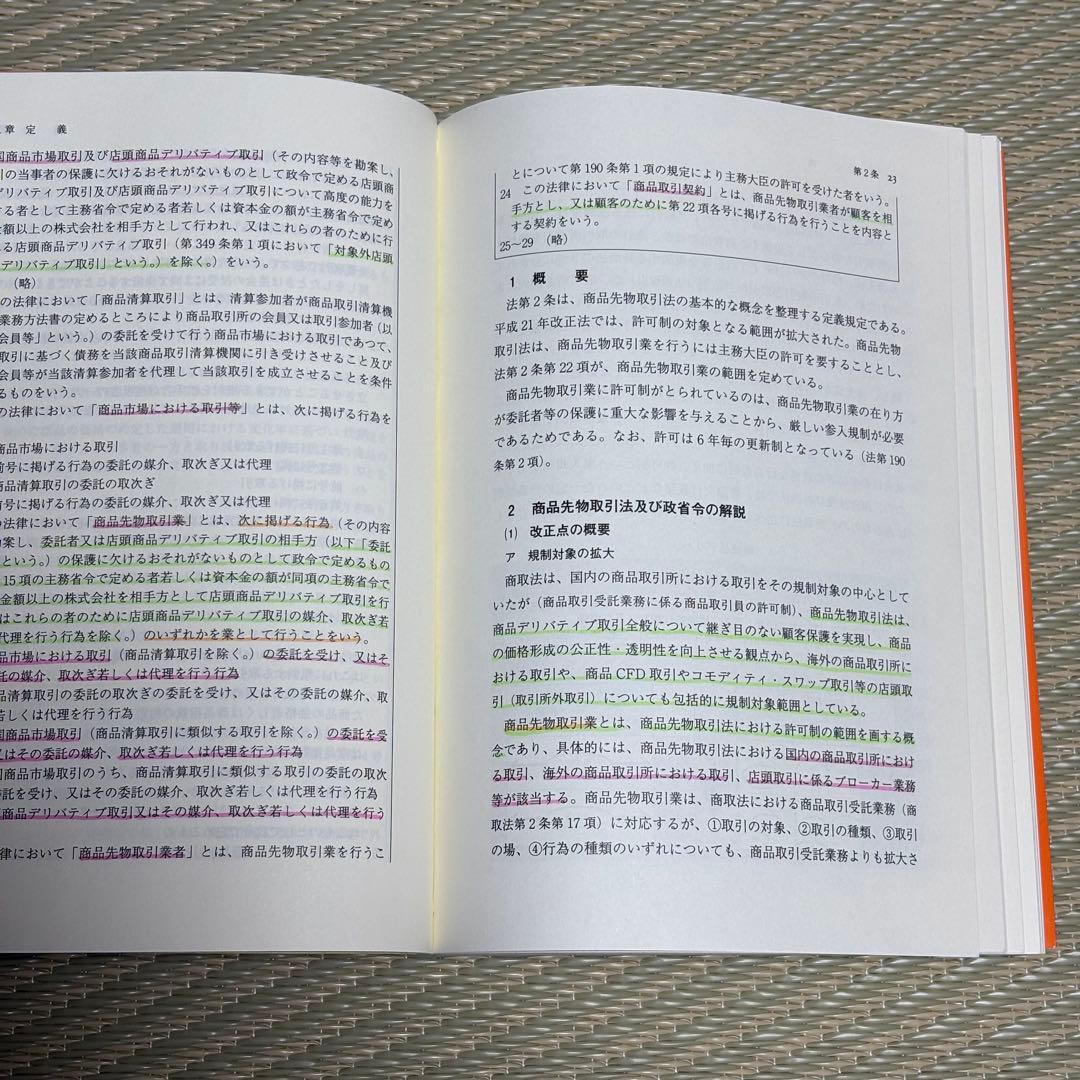 章 定 義
国商品市場取引及び店頭商品デリバティブ取引(その内容等を勘案し、
引の当事者の保護に欠けるおそれがないものとして政令で定める店頭商
デリバティブ取引及び店頭商品デリバティブ取引について高度の能力を
する者として主務省令で定める者若しくは資本金の額が主務省令で定め
金額以上の株式会社を相手方として行われ、又はこれらの者のために行
れる店頭商品デリバティブ取引(第349条第1項において「対象外店頭
デリバティブ取引」という。)を除く。)をいう。
(略)
の法律において「商品清算取引」とは、清算参加者が商品取引清算機
業務方法書の定めるところにより商品取引所の会員又は取引参加者(以
会員等」という。)の委託を受けて行う商品市場における取引であつて、
取引に基づく債務を当該商品取引清算機関に引き受けさせること及び
会員等が当該清算参加者を代理して当該取引を成立させることを条件
るものをいう。
の法律において「商品市場における取引等」とは、次に掲げる行為を
商品市場における取引
前号に掲げる行為の委託の媒介、取次ぎ又は代理
商品清算取引の委託の取次ぎ
前号に掲げる行為の委託の媒介、取次ぎ又は代理
の法律において「商品先物取引業」とは、次に掲げる行為(その内容
勘案し、委託者又は店頭商品デリバティブ取引の相手方(以下「委託
という。)の保護に欠けるおそれがないものとして政令で定めるもの
15項の主務省令で定める者若しくは資本金の額が同項の主務省令で
金額以上の株式会社を相手方として店頭商品デリバティブ取引を行
はこれらの者のために店頭商品デリバティブ取引の媒介、取次ぎ若
代理を行う行為を除く。)のいずれかを業として行うことをいう。
品市場における取引(商品清算取引を除く。)の委託を受け、又はそ
託の媒介、取次ぎ若しくは代理を行う行為
品清算取引の委託の取次ぎの委託を受け、又はその委託の媒介、取
若しくは代理を行う行為
国商品市場取引(商品清算取引に類似する取引を除く。)の委託を受
又はその委託の媒介、取次ぎ若しくは代理を行う行為
国商品市場取引のうち、商品清算取引に類似する取引の委託の取次
委託を受け、又はその委託の媒介、取次ぎ若しくは代理を行う行為
商品デリバティブ取引又はその媒介、取次ぎ若しくは代理を行う
律において「商品先物取引業者」とは、商品先物取引業を行うこ
第2条 23
とについて第190条第1項の規定により主務大臣の許可を受けた者をいう。
24 この法律において「商品取引契約」とは、商品先物取引業者が顧客を相
手方とし、又は顧客のために第22項各号に掲げる行為を行うことを内容と
する契約をいう。
25〜29 (略)
1 概 要
法第2条は、商品先物取引法の基本的な概念を整理する定義規定である。
平成21年改正法では、許可制の対象となる範囲が拡大された。商品先物
取引法は、商品先物取引業を行うには主務大臣の許可を要することとし、
法第2条第22項が、商品先物取引業の範囲を定めている。
商品先物取引業に許可制がとられているのは、商品先物取引業の在り方
が委託者等の保護に重大な影響を与えることから、厳しい参入規制が必要
であるためである。なお、許可は6年毎の更新制となっている(法第190
条第2項)。
2 商品先物取引法及び政省令の解説
(1) 改正点の概要
ア 規制対象の拡大
商取法は、国内の商品取引所における取引をその規制対象の中心として
いたが(商品取引受託業務に係る商品取引員の許可制)、商品先物取引法は、
商品デリバティブ取引全般について継ぎ目のない顧客保護を実現し、商品
の価格形成の公正性・透明性を向上させる観点から、海外の商品取引所に
おける取引や、商品CFD取引やコモディティ・スワップ取引等の店頭取
引(取引所外取引)についても包括的に規制対象範囲としている。
商品先物取引業とは、商品先物取引法における許可制の範囲を画する概
念であり、具体的には、商品先物取引法における国内の商品取引所におけ
る取引、海外の商品取引所における取引、店頭取引に係るブローカー業務
等が該当する。商品先物取引業は、商取法における商品取引受託業務(商
取法第2条第17項)に対応するが、①取引の対象、②取引の種類、③取引
の場、④行為の種類のいずれについても、商品取引受託業務よりも拡大さ